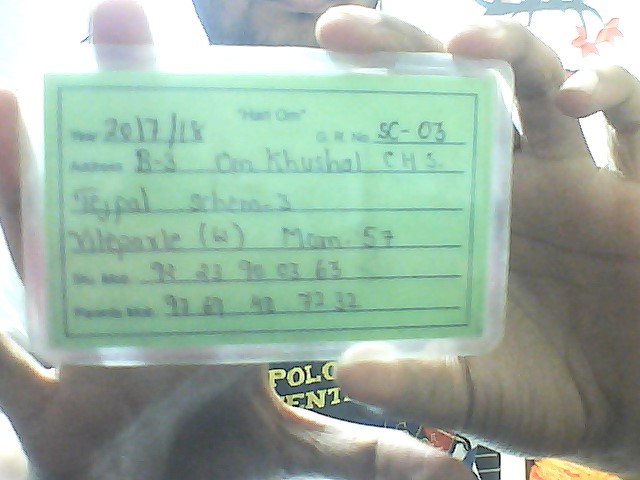 "Hari Om"
Year 2017/18 G. R. No. SC-03
Address B-3 Om Khushal C.H.S.
Tejpal Scheme-3
Vileparle (W) Mum-57
Stu. Mob. 90 03 63
Parents Mob. 72 32
POLO